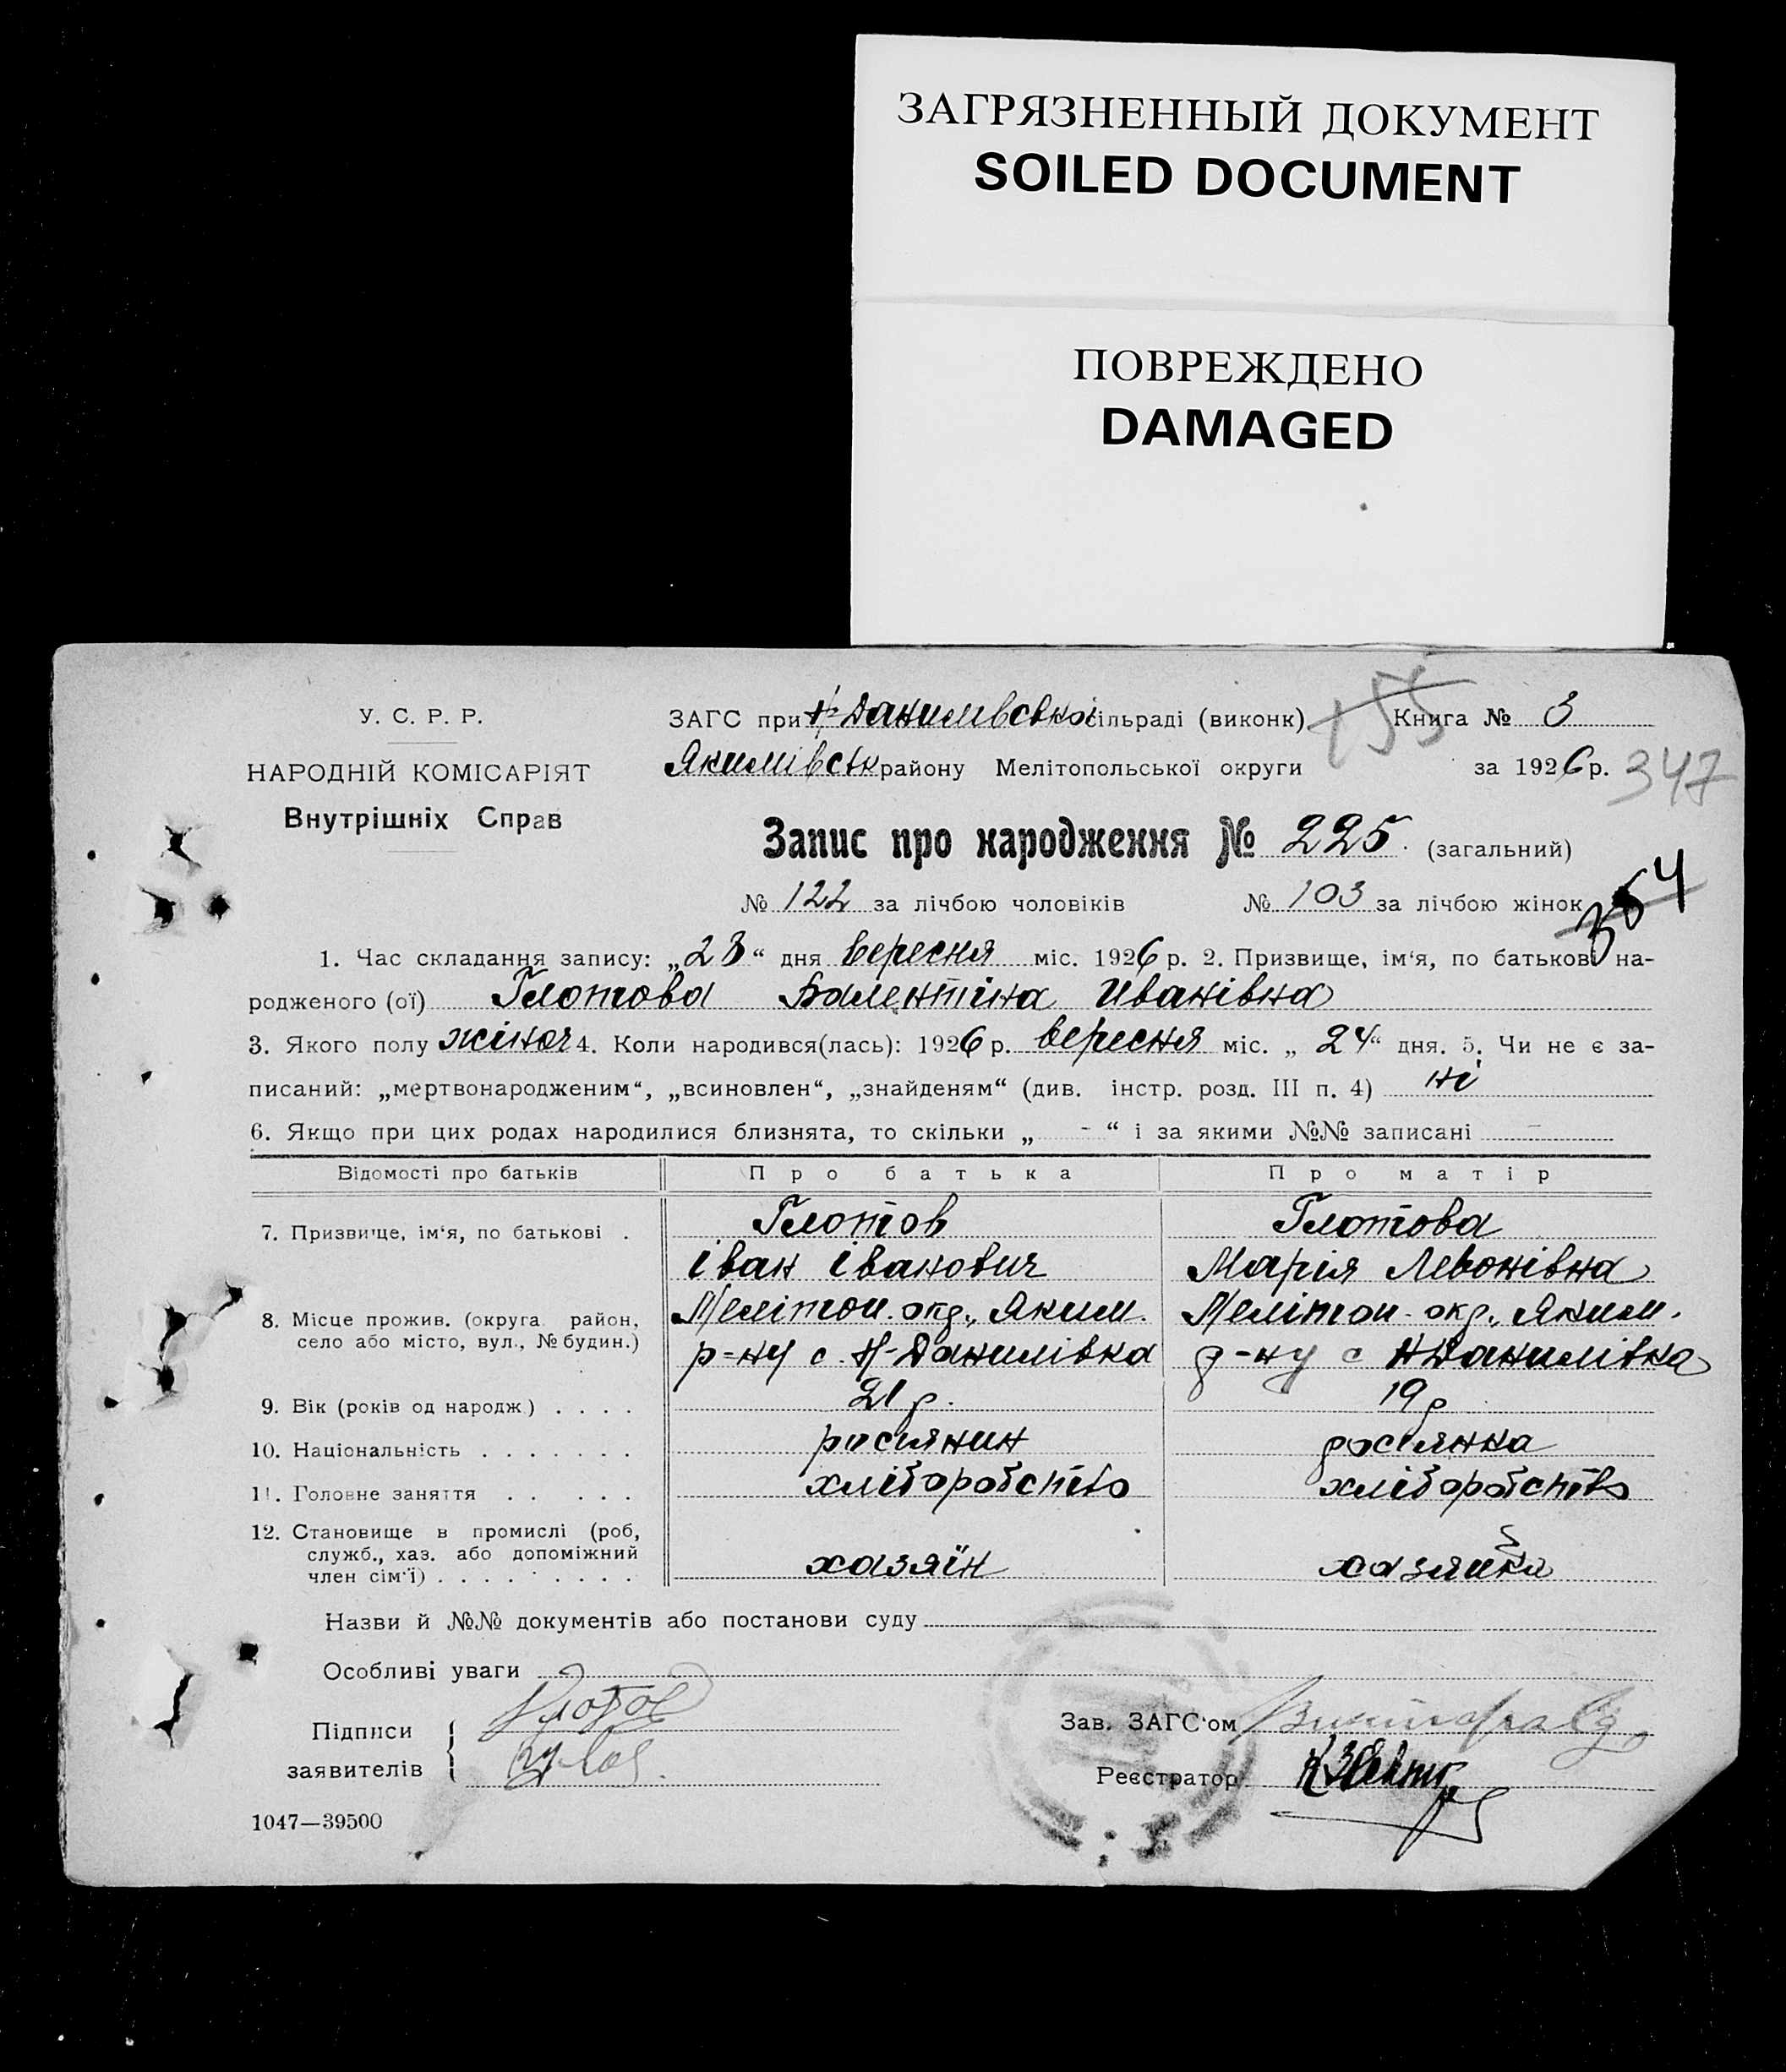 ЗАГРЯЗНЕННЫЙ ДОКУМЕНТ
SOILED DOCUMENT
ПОВРЕЖДЕНО
DAMAGED
У. С. Р. Р.
НАРОДНІЙ КОМІСАРІЯТ
Внутрішніх Справ
ЗАГС при Н-Данилівській сільраді (виконк) 155 Книга № 3
Якимівськ району Мелітопольської округи за 1926 р. 347
Запис про народження № 225. (загальний)
№ 122 за лічбою чоловіків № 103 за лічбою жінок 354
1. Час складання запису: „28“ дня вересня міс. 1926 р. 2. Призвище, ім‘я, по батькові на-
родженого (ої) Глотова Валентіна Иванівна
3. Якого полу жіноч 4. Коли народився(лась): 1926 р. вересня міс. „24“ дня. 5. Чи не є за-
писаний: „мертвонародженим“, „всиновлен“, „знайденям“ (див. інстр. розд. III п. 4) ні
6. Якщо при цих родах народилися близнята, то скільки „ - “ і за якими №№ записані -
Відомості про батьків Про батька Про матір
7. Призвище, ім‘я, по батькові . Глотов Глотова
іван іванович Марія Левонівна
8. Місце прожив. (округа район, Мелітоп. окр., Яким. Мелітоп- окр., Яким.
село або місто, вул., № будин.) р=ну с. Н-Данилівка р-ну с НДанилівка
9. Вік (років од народж.) . . . . 21 р. 19 р
10. Національність . . . . . . . росіянин росіянка
11. Головне заняття . . . . . хліборобство хліборобство
12. Становище в промислі (роб,
служб., хаз. або допоміжний хазяїн хазяйка
член сім‘ї) . . . . . . . . .
Назви й №№ документів або постанови суду
Особливі уваги
Підписи
заявителів
Зав. ЗАГС‘ом
Реєстратор
1047—39500